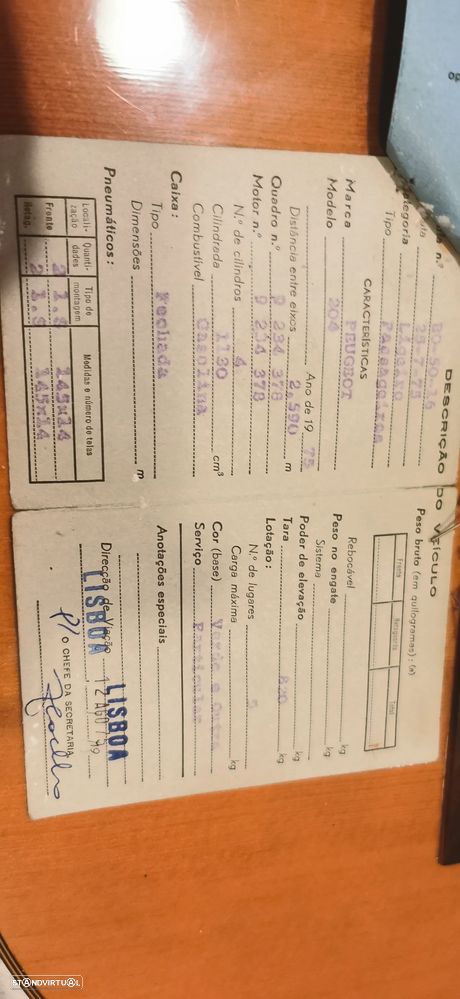 DESCRIÇÃO DO VEÍCULO
Categoria Ligeiro
Tipo Passageiros
CARACTERÍSTICAS
Marca PEUGEOT
Modelo 204
Ano de 19 75
Distância entre eixos 2.590 m
Quadro n.º 9 234 378
Motor n.º 9 234 378
N.º de cilindros 4
Cilindrada 1130 cm³
Combustível Gasolina
Caixa:
Tipo Fechada
Dimensões m
Pneumáticos:
Locali-zação Quanti-dades Tipo de montagem Medidas e número de telas
Frente 2 1.S 145x14
Retag. 2 1.S 145x14
Peso bruto (em quilogramas): (a)
Frente Retaguarda Total
Rebocável kg
Peso no engate kg
Sistema
Poder de elevação kg
Tara 820 kg
Lotação:
N.º de lugares 5
Carga máxima kg
Cor (base) Verde e Outra
Serviço Particular
Anotações especiais
LISBOA
Direcção de Viação
LISBOA 12 AGO 799
O CHEFE DA SECRETARIA
STANDVIRTUAL